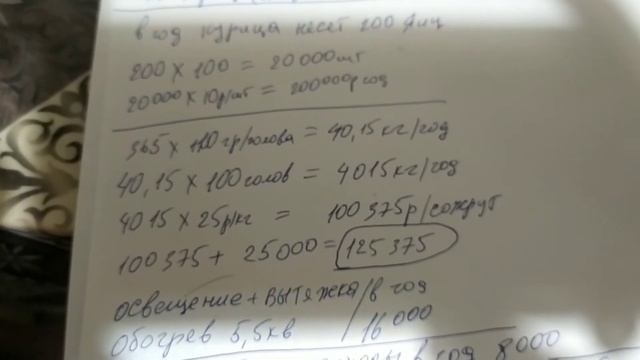 в год курица несет 200 яиц
200 x 100 = 20 000шт
20000 x 10р/шт = 200000р год
365 x 110 гр/голова = 40,15кг/год
40,15 x 100 голов = 4015кг/год
4015 x 25р/кг = 100 375р/сожрут
100 375 + 25 000 = 125 375
освещение + вытяжка/в год
Обогрев 5,5кв / 16 000
в год 8000